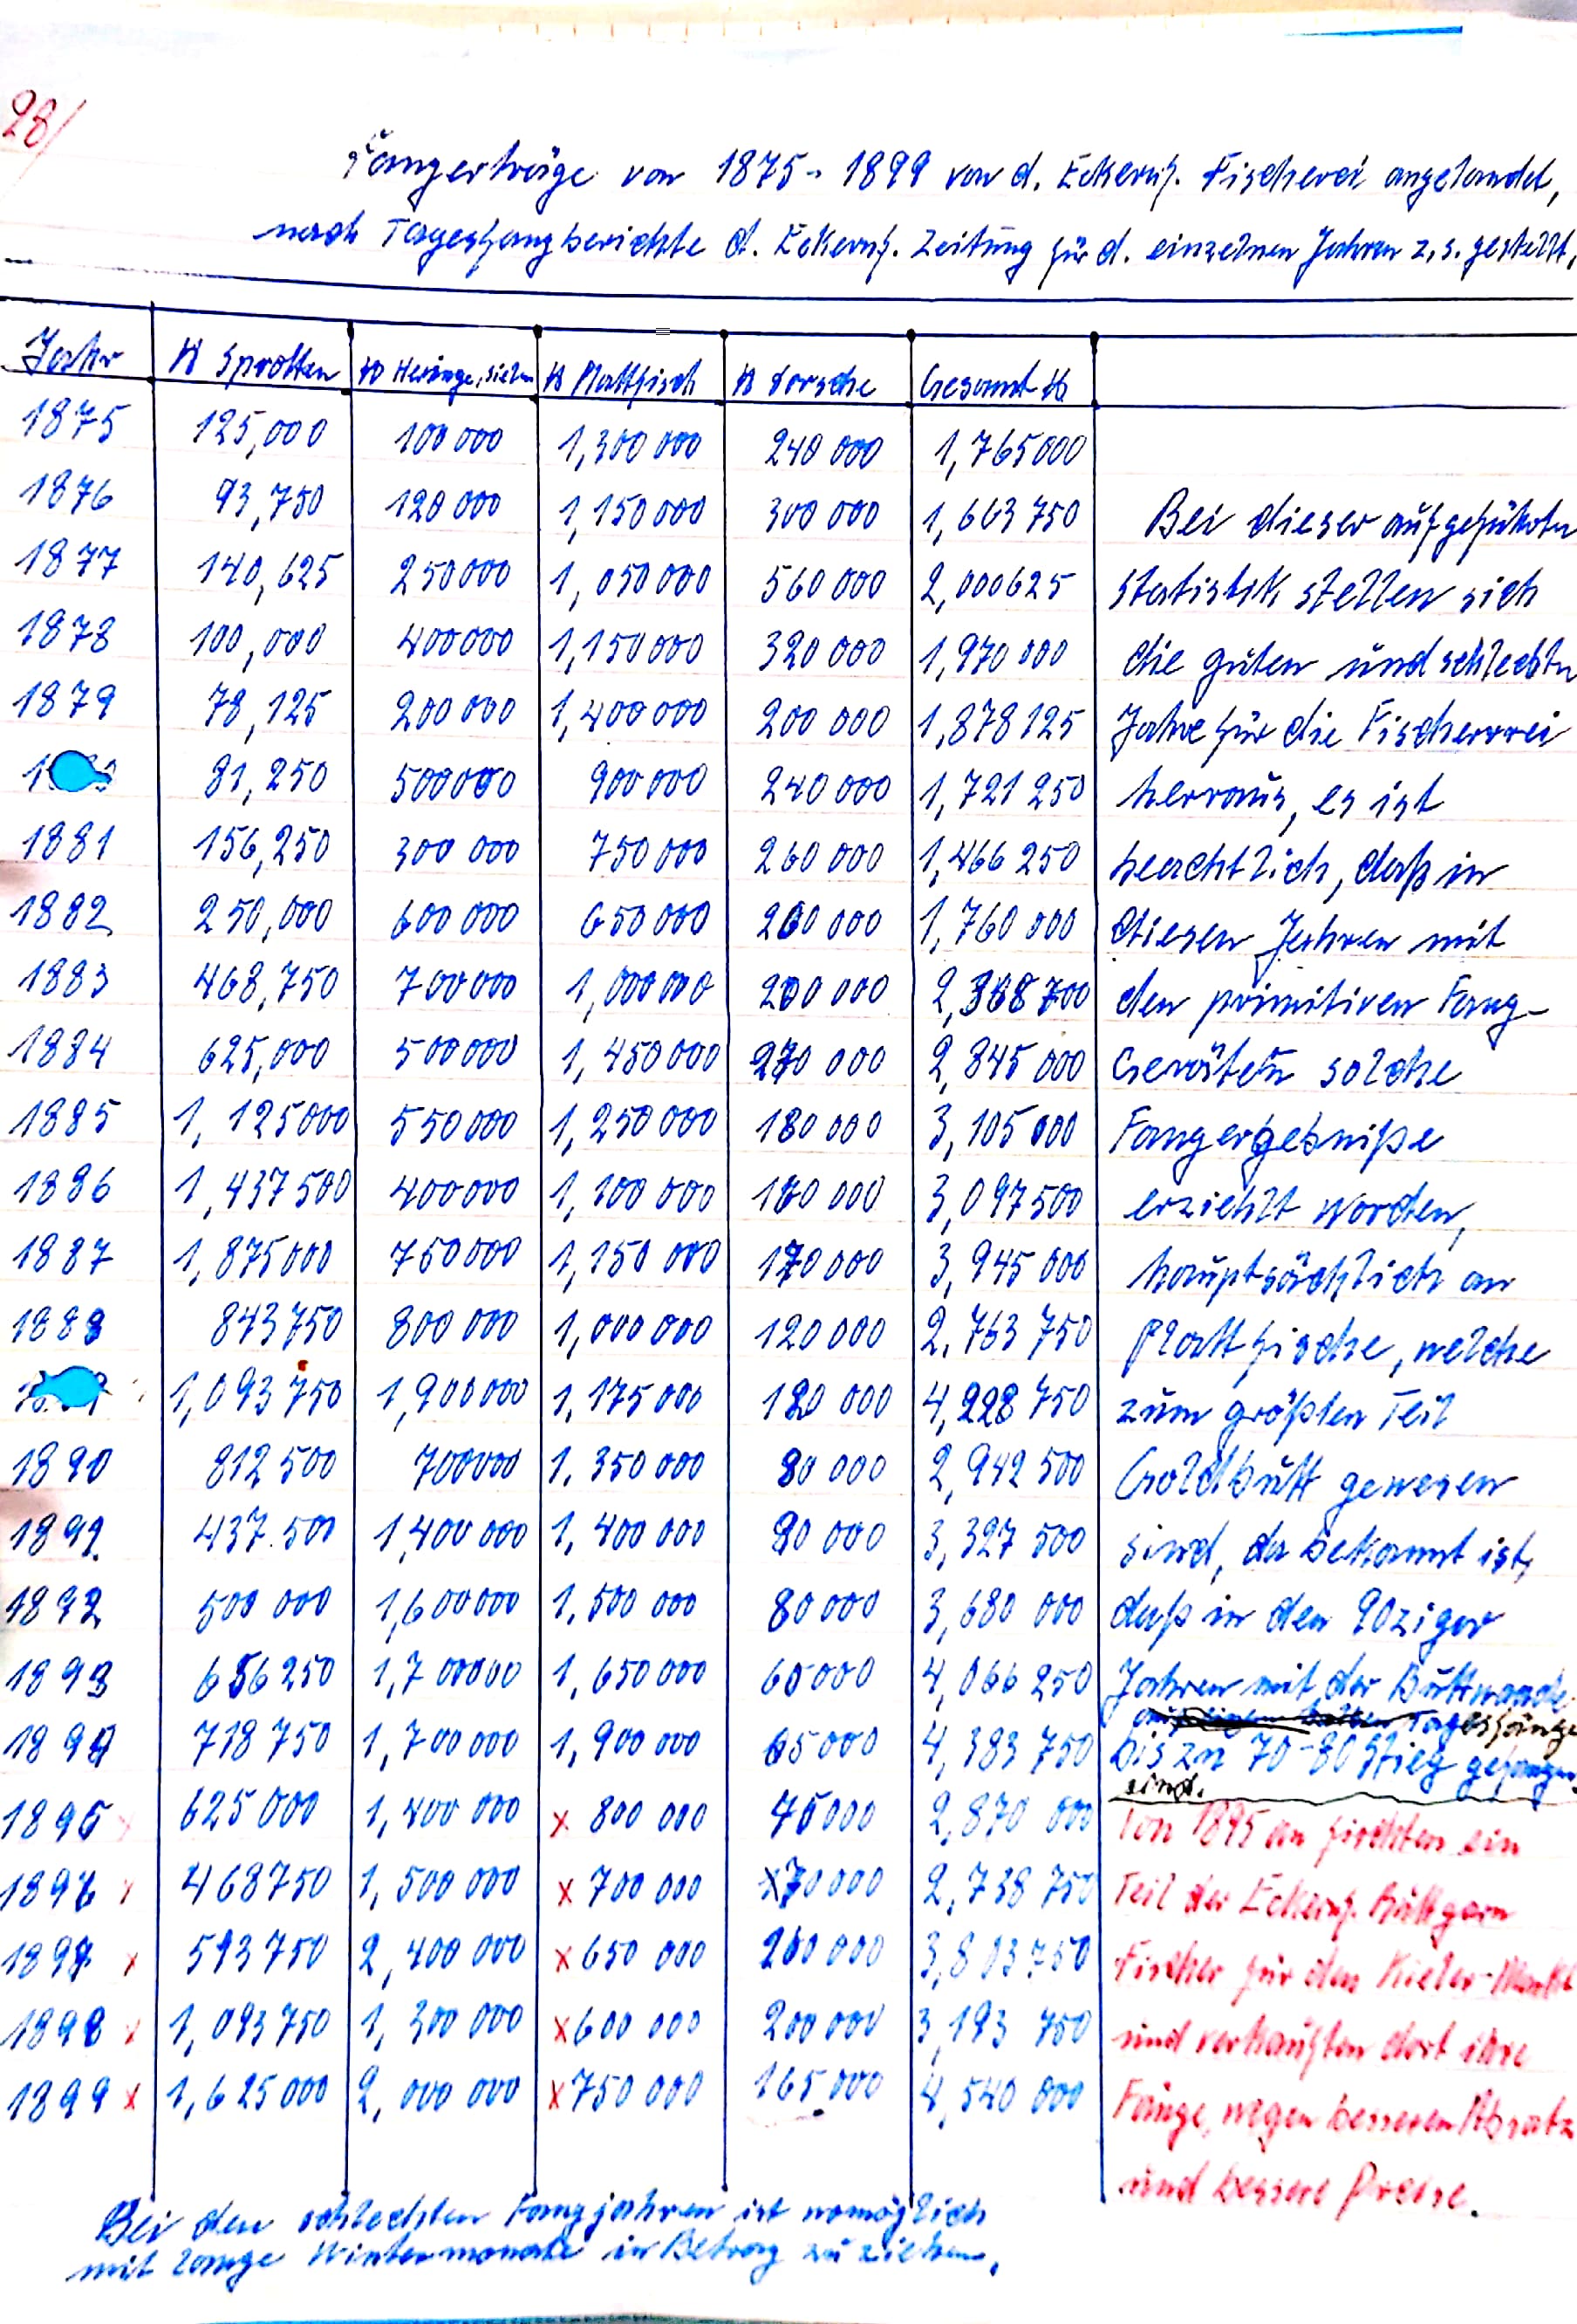 28/
Fangerträge von 1875-1899 von d. Eckernf. Fischerei angelandet,
nach Tagesfangberichte d. Eckernf. Zeitung für d. einzelnen Jahren z.s. gestellt,
Jahr ℔ Sprotten ℔ Heringe, sielen ℔ Plattfisch ℔ Dorsche Gesamt ℔
1875 125,000 100 000 1,300 000 240 000 1,765000
1876 93,750 120 000 1,150 000 300 000 1,663 750 Bei dieser aufgeführten
1877 140,625 250000 1,050000 560 000 2,000625 Statistik stellen sich
1878 100,000 400000 1,150000 320 000 1,970 000 die guten und schlechten
1879 78,125 200 000 1,400000 200 000 1,878125 Jahre für die Fischerrei
81,250 500000 900 000 240 000 1,721 250 herraus, es ist
1881 156,250 300 000 750 000 260 000 1,466 250 beachtlich, daß in
1882 250,000 600 000 650 000 260 000 1,760 000 diesen Jahren mit
1883 468,750 700 000 1,000 000 200 000 2,368 700 den primitiven Fang-
1884 625,000 500000 1,450000 270 000 2,845 000 Geräten solche
1885 1,125000 550 000 1,250 000 180 000 3,105 000 Fangergebniße
1886 1,437500 400000 1,100 000 160 000 3,097500 erziehlt worden,
1887 1,875000 750000 1,150 000 170 000 3,945 000 hauptsächlich an
1888 843750 800 000 1,000 000 120 000 2.763 750 Plattfische, welche
1,093750 1,900000 1,175 000 120 000 4,228 750 zum größten Teil
1890 812 500 700000 1,350 000 80 000 2,942 500 Goldbutt gewesen
1891. 437.500 1,400 000 1,400 000 90 000 3,327 500 sind, da bekannt ist,
1892 500 000 1,600000 1,500 000 80 000 3,680 000 daß in den 90ziger
1893 656250 1,700000 1,650 000 60000 4,066 250 Jahren mit der Buttwaade
Tagesfänge
1894 718 750 1,700000 1,900 000 65000 4,383 750 bis zu 70-80 Stieg gefangen
sind.
1895 x 625000 1,400 000 x 800 000 45000 2,870 000 Von 1895 an fischten ein
1896 x 468750 1,500 000 x 700 000 70000 2,738 750 Teil der Eckernf. Buttgarn
1897 x 593750 2,400 000 x 650 000 260 000 3,803750 Fischer für den Kieler-Markt
1898 x 1,093750 1,300 000 x 600 000 200 000 3,193 750 und verkauften dort ihre
1899 x 1,625000 2,000 000 x 750 000 165 000 4,540 000 Fänge, wegen besseren Absatz
und bessere Preise.
Bei den schlechten Fangjahren ist womöglich
mit lange Wintermonate in Betrag zu ziehen.